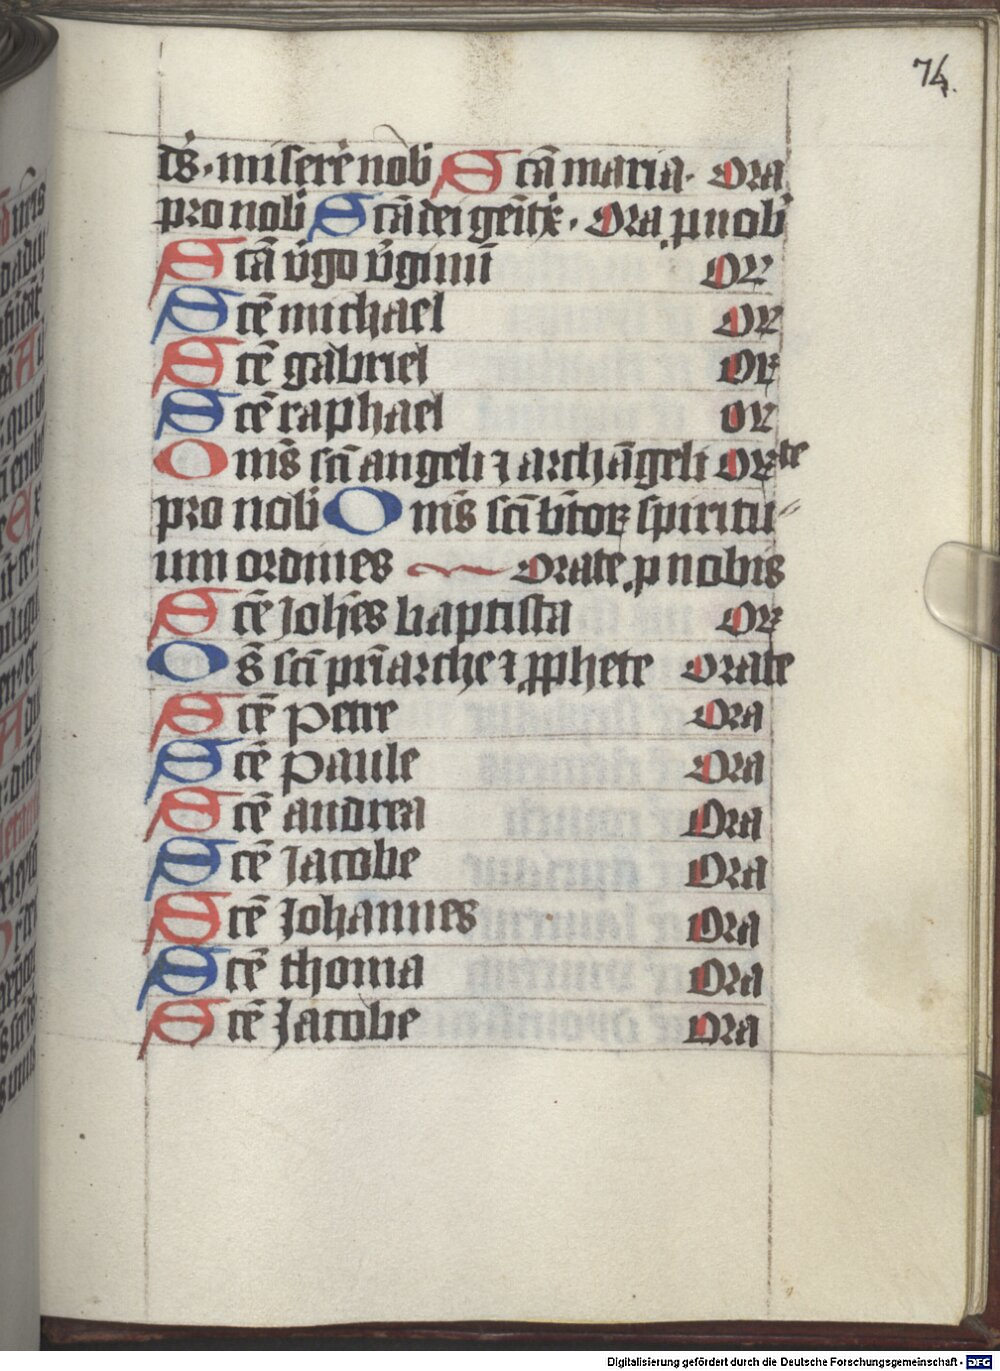 74.
ds · miserē nob Scā maria · Ora
pro nob Scā dei genitx · Ora p nob
Scā v̄go v̄ginū Or
Scē michael Or
Scē gabriel Or
Scē raphael Or
Omīs scī angeli ⁊ archāgeli Orate
pro nob Omīs scī btōꝝ spiritu
um ordines Orate p nobis
Scē Johēs baptista Or
Os scī priarche ⁊ pphete orate
Scē petre Ora
Scē paule Ora
Scē andrea Ora
Scē Jacobe Ora
Scē Johannes Ora
Scē thoma Ora
Scē Jacobe Ora
Digitalisierung gefördert durch die Deutsche Forschungsgemeinschaft - DFG